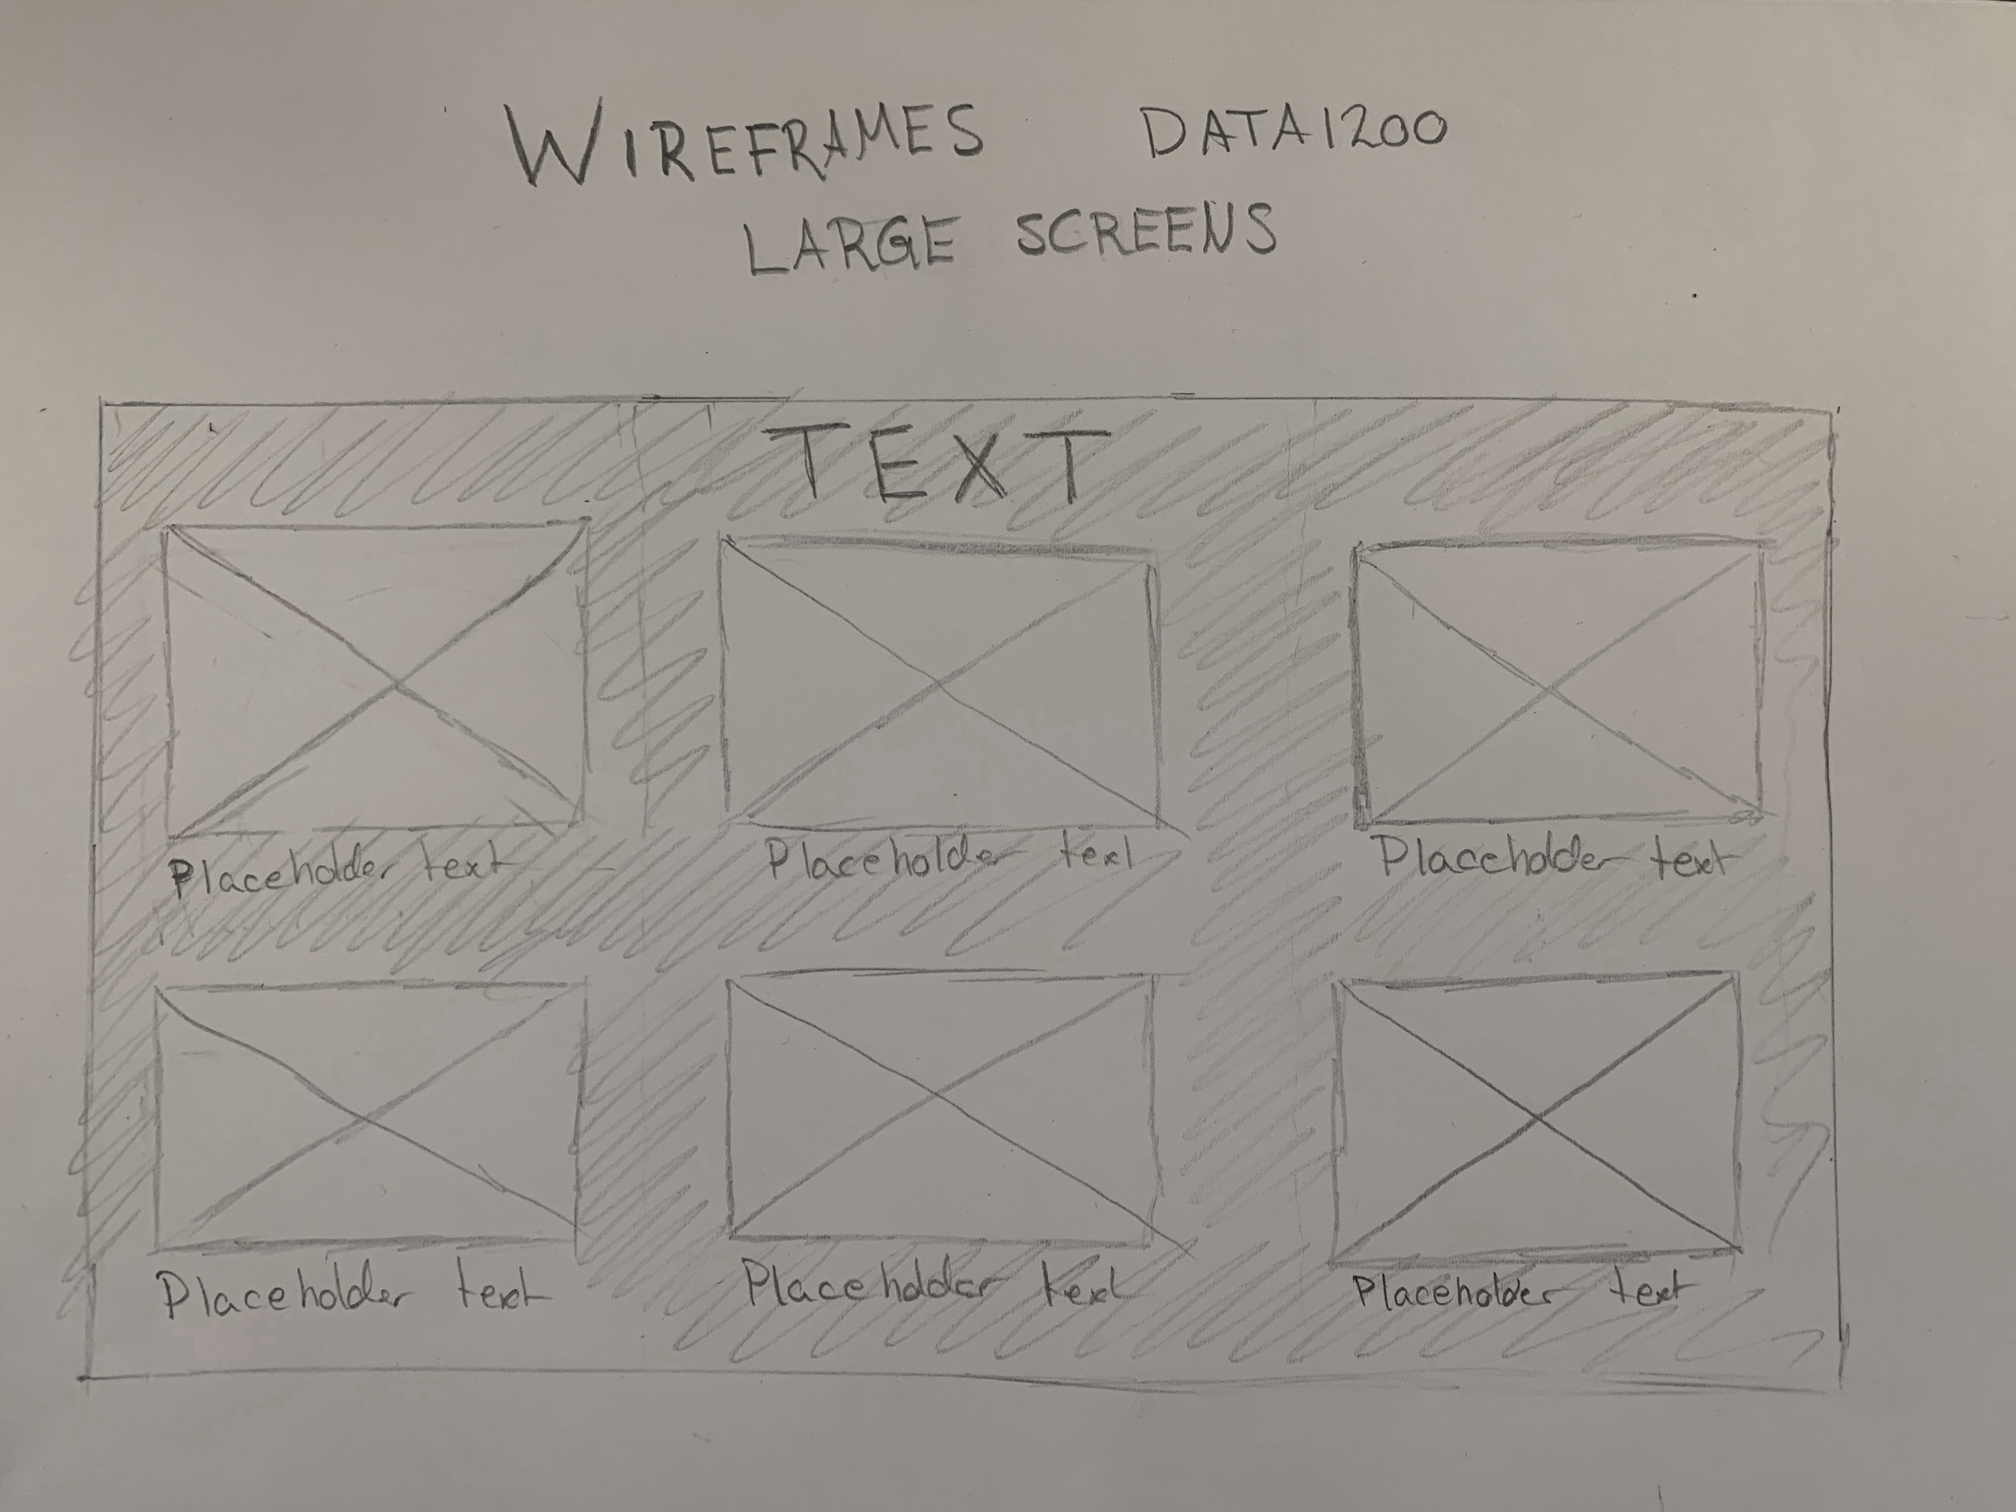 WIREFRAMES DATA1200
LARGE SCREENS
TEXT
Placeholder text Placeholder text Placeholder text
Placeholder text Placeholder text Placeholder text